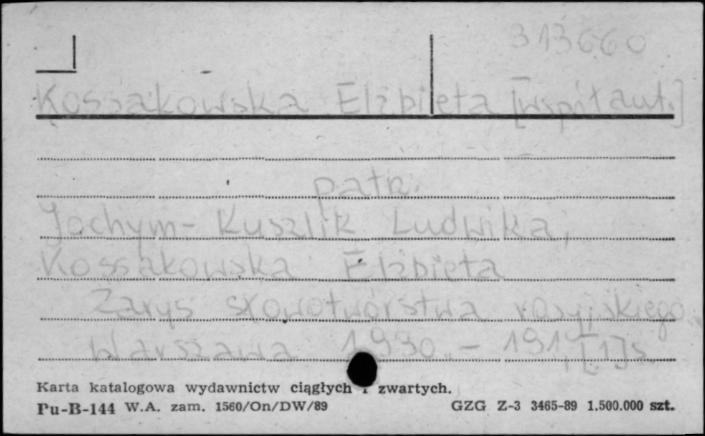 313660
Kossakowska Elżbieta [współaut.]
patrz
Jochym-Kuszlik Ludwika,
Kossakowska Elżbieta
Zarys słowotwórstwa rosyjskiego.
Warszawa 1990. – 191,[1]s.
Karta katalogowa wydawnictw ciągłych i zwartych.
Pu-B-144 W.A. zam. 1560/On/DW/89 GZG Z-3 3465-89 1.500.000 szt.